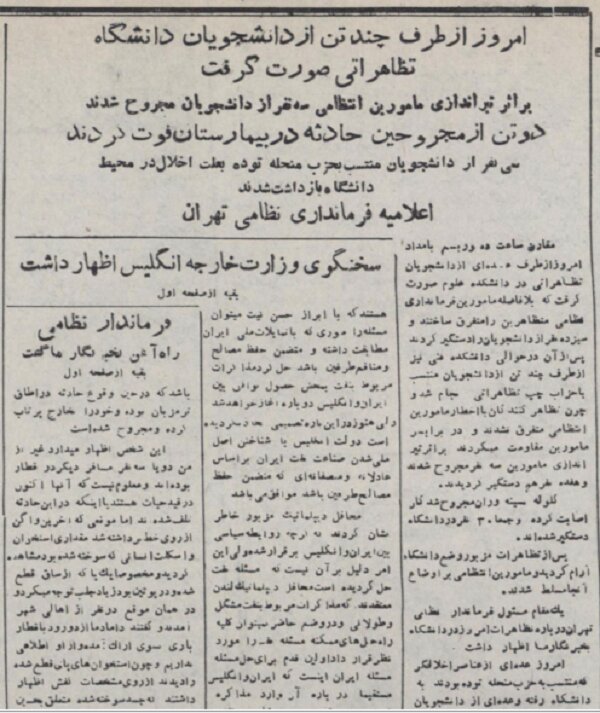 امروز از طرف چند تن از دانشجویان دانشگاه
تظاهراتی صورت گرفت
براثر تیراندازی مامورین انتظامی سه نفر از دانشجویان مجروح شدند
دو تن از مجروحین حادثه در بیمارستان فوت کردند
سی نفر از دانشجویان منتسب بحزب منحله توده بعلت اخلال در محیط
دانشگاه بازداشت شدند
اعلامیه فرمانداری نظامی تهران
مقارن ساعت ده و ربسم بامداد
امروز از طرف عده‌ای از دانشجویان
تظاهراتی در دانشکده علوم صورت
گرفت که بلافاصله مامورین فرمانداری
نظامی متظاهرین را متفرق ساختند و
سیزده نفر از دانشجویان را دستگیر کردند
پس از آن در حوالی دانشکده فنی نیز
از طرف چند تن از دانشجویان منتسب
باحزاب چپ تظاهراتی انجام شد و
چون تظاهر کنندگان با اخطار مامورین
انتظامی متفرق نشدند و در برابر
مامورین مقاومت میکردند براثر تیر
اندازی مامورین سه نفر مجروح شدند
و هفده نفر هم دستگیر گردیدند.
گلوله سینه و ران مجروح شدگان
اصابت کرده و جمعا ۳۰ نفر در دانشگاه
دستگیر شده‌اند
پس از تظاهرات مزبور وضع دانشگاه
آرام گردید و مامورین انتظامی بر اوضاع
آنجا مسلط شدند.
یك مقام مسئول فرماندار نظامی
تهران درباره تظاهرات امروز در دانشگاه
بخبرنگار ما اظهار داشت
امروز عده‌ای از عناصر اخلالگر
که منتسب به حزب منحله توده بودند به
دانشگاه رفته و عده‌ای از دانشجویان
سخنگوی وزارت خارجه انگلیس اظهار داشت
بقیه از صفحه اول
هستند که با ابراز حسن نیت میتوان
مسئله را طوری که با تمایلات ملی ایران
مطابقت داشته و متضمن حفظ مصالح
و منافع طرفین باشد حل کرد مذاکرات
مربوط بنفت بمحض حصول توافق بین
ایران و انگلیس دوباره آغاز خواهد شد
ولی هنوز در این باره تصمیمی
است دولت انگلیس با شناختن اصل
ملی شدن صنعت نفت ایران براساس
عادلانه و منصفانه‌ای که متضمن حفظ
مصالح طرفین باشد موافق می‌باشد
محافل دیپلماتیک مزبور خاطر
نشان کردند که گرچه روابط سیاسی
بین ایران و انگلیس برقرار شده ولی این
امر دلیل بر آن نیست که مسئله نفت
حل گردیده است محافل دیپلماتیک لندن
معتقدند که مذاکرات مربوط بنفت مشکل
و طولانی و در وضع حاضر میتوان کلیه
راه حل‌های ممکنه مسئله نفت را مورد
نظر قرار داد اولین قدم برای حل مسئله
مسئله ایران اینست که ایران و انگلیس
مستقیما در باره آن وارد مذاکره
فرماندار نظامی
راه آهن بخبرنگار ما گفت
بقیه از صفحه اول
باشد که در حین وقوع حادثه در اطاق
ترمزبان بوده و خود را بخارج پرتاب
کرده و مجروح شده است
این شخص اظهار میدارد غیر از
من دو یا سه نفر مسافر دیگر در قطار
بوده‌اند و معلوم نیست که آنها اکنون
در قید حیات هستند یا اینکه در این حادثه
تلف شده‌اند اما موقعی که آخرین واگن
از روی خط برداشته شد مقداری استخوان
و اسکلت انسانی که سوخته شده بود مشاهده
گردید و مخصوصا یك پا که از ساق قطع
شده و در پوتین بود زیاد جلب توجه میکرد و
در همان موقع دو نفر از اهالی شهر
آمدند و گفتند داماد ما از دورود با قطار
باری سوی اراك آمده و از او اطلاعی
نداریم و چون استخوان‌های پای قطع شده
را دیدند از روی مشخصات کفش اظهار
داشتند که جسد سوخته شده متعلق بحسین